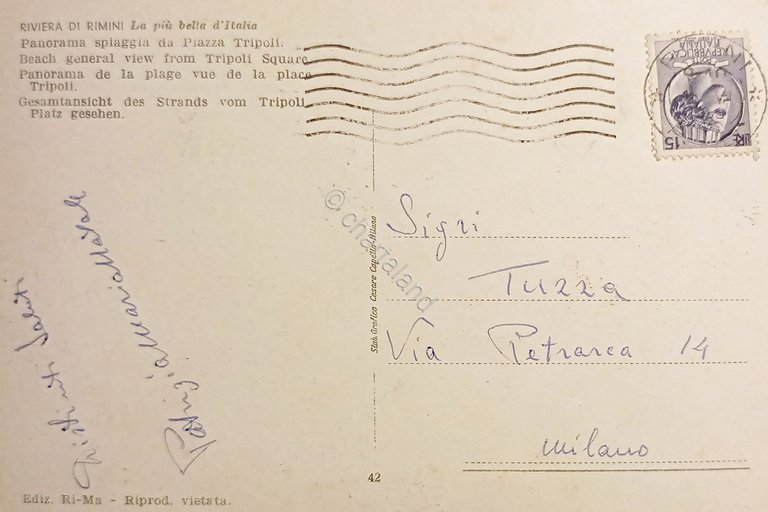 RIVIERA DI RIMINI La più bella d'Italia
Panorama spiaggia da Piazza Tripoli.
Beach general view from Tripoli Square
Panorama de la plage vue de la place
Tripoli.
Gesamtansicht des Strands vom Tripoli
Platz gesehen.
REPVBBLICA
ITALIANA
POSTE
LIRE 15
Distinti saluti
Stab. Grafico Cesare Capello-Milano
© chartaland
Sigri
Tuzza
Via Petrarca 14
Milano
42
Ediz. Ri-Ma - Riprod. vietata.